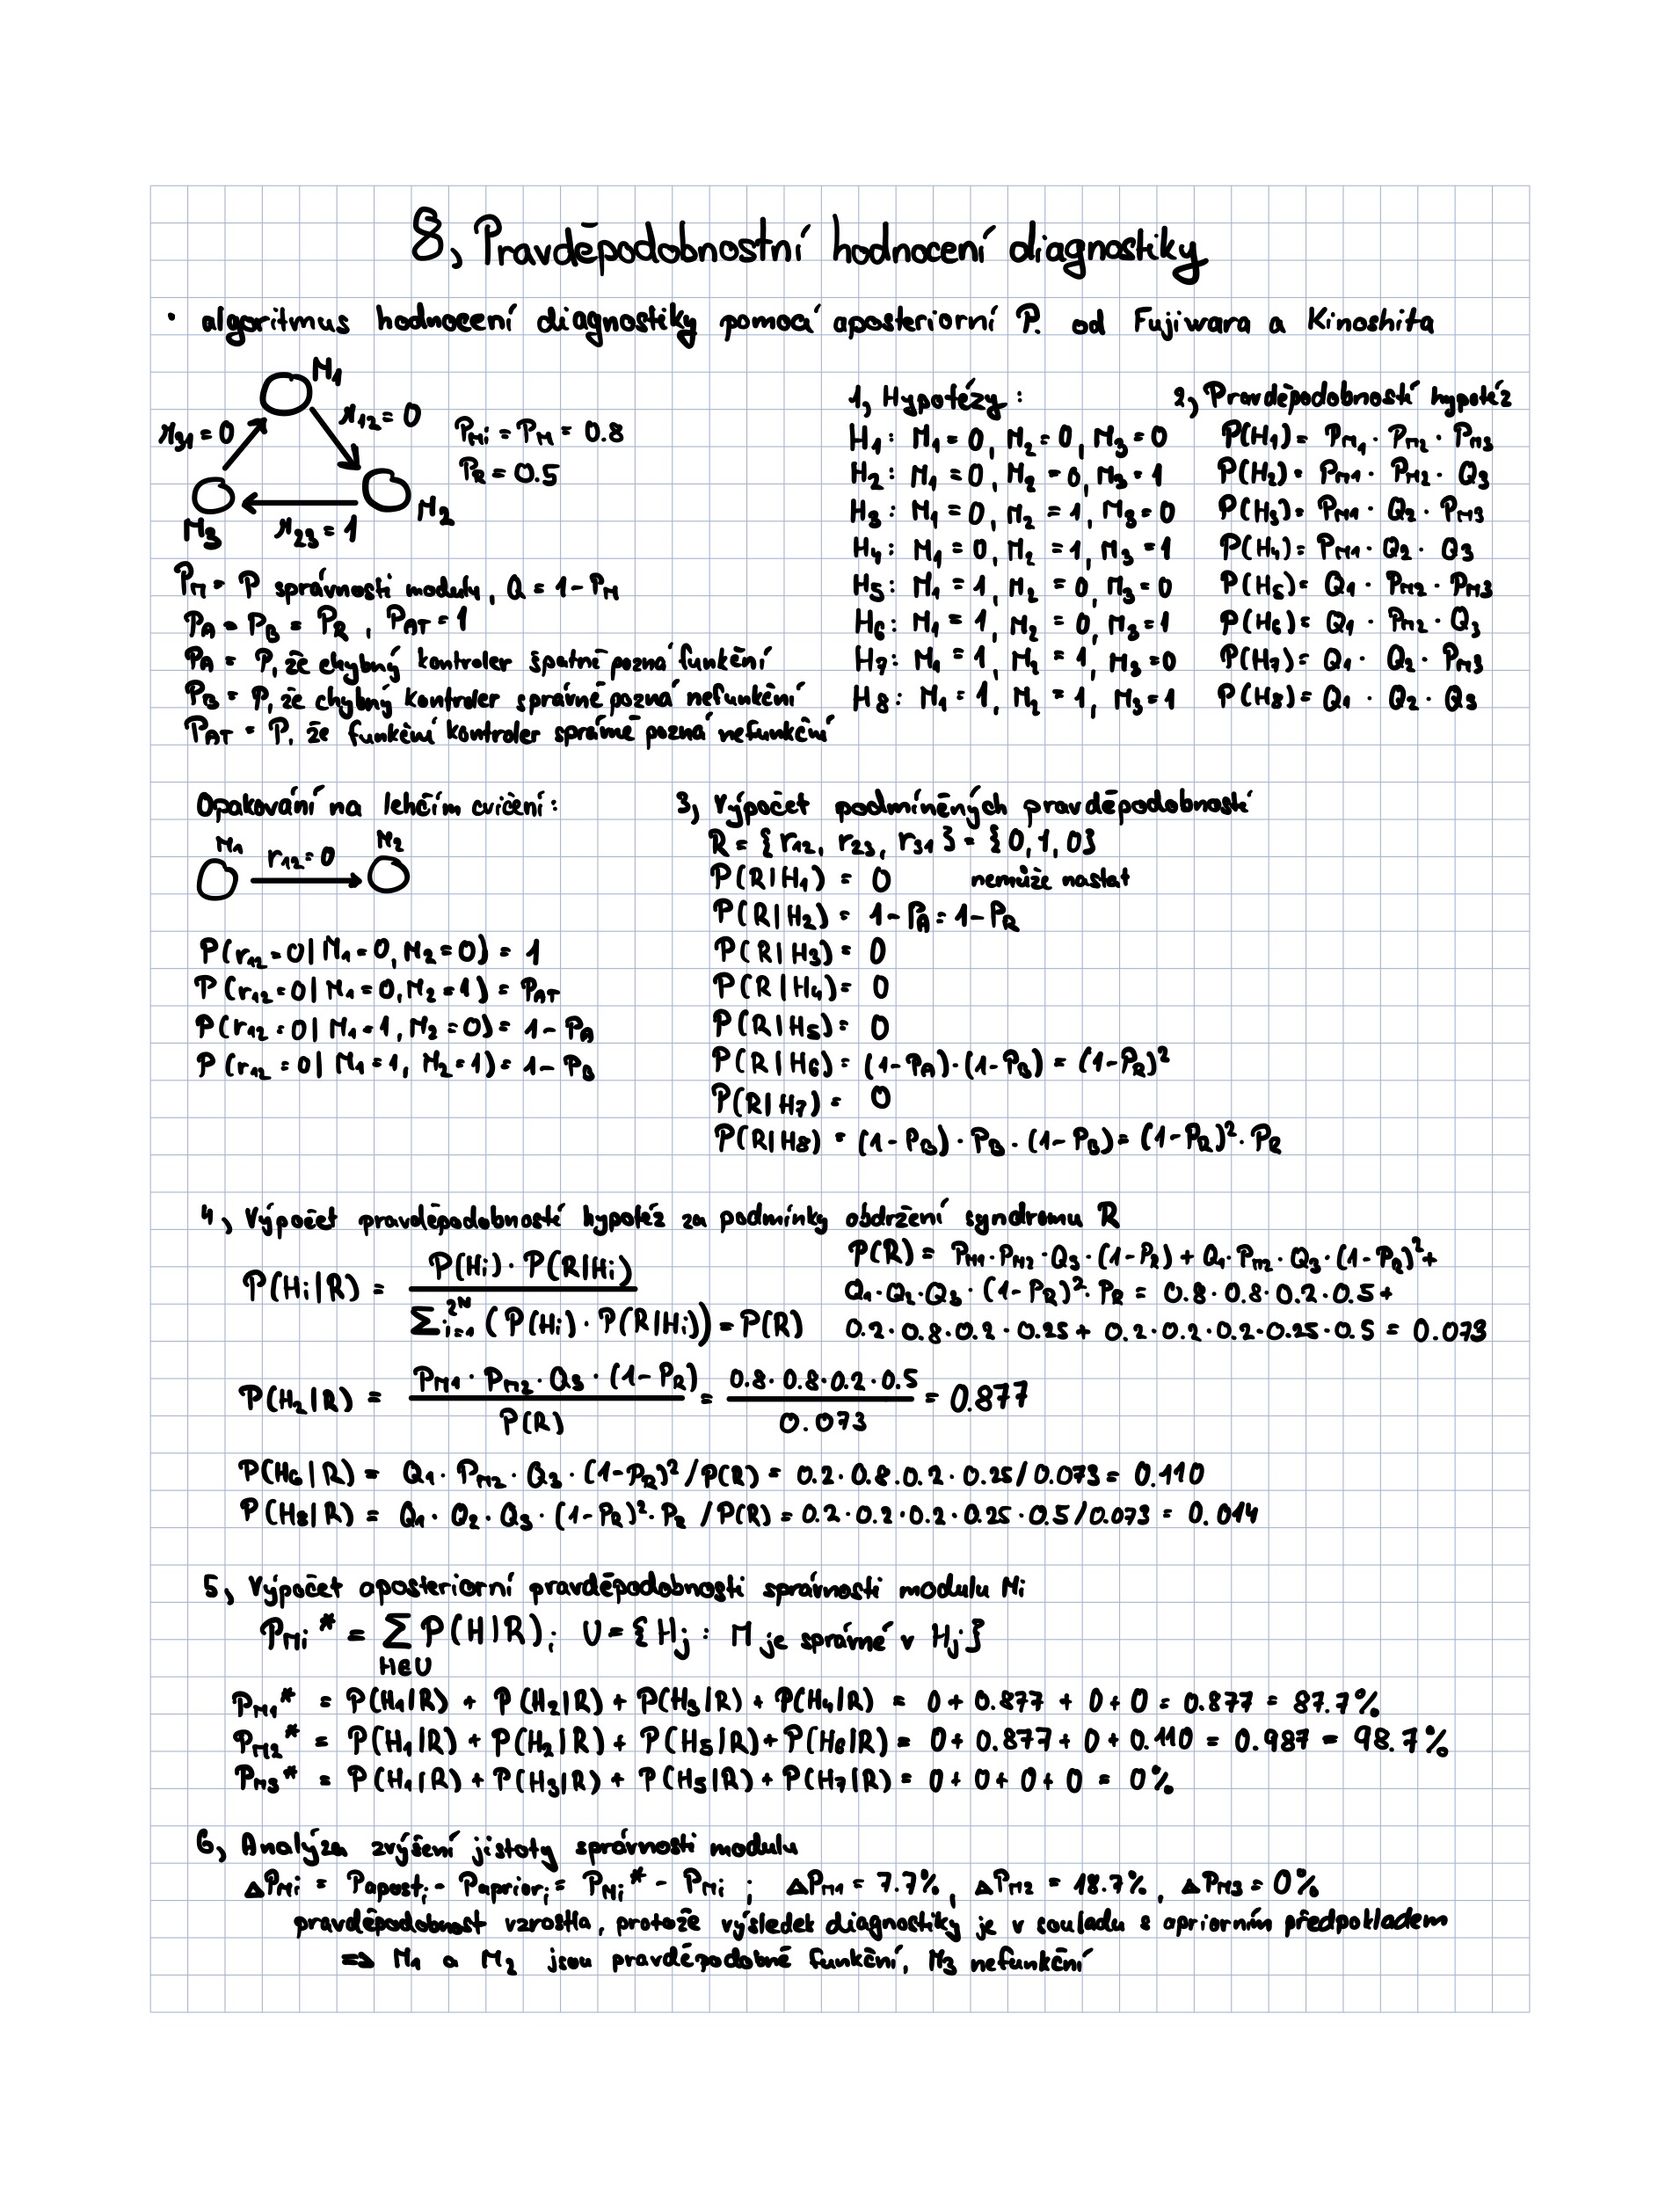 8, Pravděpodobnostní hodnocení diagnostiky
• algoritmus hodnocení diagnostiky pomocí aposteriorní P. od Fujiwara a Kinoshita
M₁
r₃₁ = 0
r₁₂ = 0
M₃
r₂₃ = 1
M₂
P_Mi = P_M = 0.8
P_R = 0.5
P_M = P správnosti modulu, Q = 1 - P_M
P_A = P_B = P_R, P_AT = 1
P_A = P, že chybný kontroler špatně pozná funkční
P_B = P, že chybný kontroler správně pozná nefunkční
P_AT = P, že funkční kontroler správně pozná nefunkční
1, Hypotézy:
H₁: M₁ = 0, M₂ = 0, M₃ = 0
H₂: M₁ = 0, M₂ = 0, M₃ = 1
H₃: M₁ = 0, M₂ = 1, M₃ = 0
H₄: M₁ = 0, M₂ = 1, M₃ = 1
H₅: M₁ = 1, M₂ = 0, M₃ = 0
H₆: M₁ = 1, M₂ = 0, M₃ = 1
H₇: M₁ = 1, M₂ = 1, M₃ = 0
H₈: M₁ = 1, M₂ = 1, M₃ = 1
2, Pravděpodobnosti hypotéz
P(H₁) = P_M1 · P_M2 · P_M3
P(H₂) = P_M1 · P_M2 · Q₃
P(H₃) = P_M1 · Q₂ · P_M3
P(H₄) = P_M1 · Q₂ · Q₃
P(H₅) = Q₁ · P_M2 · P_M3
P(H₆) = Q₁ · P_M2 · Q₃
P(H₇) = Q₁ · Q₂ · P_M3
P(H₈) = Q₁ · Q₂ · Q₃
Opakování na lehčím cvičení:
M₁ r₁₂ = 0 M₂
P(r₁₂ = 0 | M₁ = 0, M₂ = 0) = 1
P(r₁₂ = 0 | M₁ = 0, M₂ = 1) = P_AT
P(r₁₂ = 0 | M₁ = 1, M₂ = 0) = 1 - P_A
P(r₁₂ = 0 | M₁ = 1, M₂ = 1) = 1 - P_B
3, Výpočet podmíněných pravděpodobností
R = {r₁₂, r₂₃, r₃₁} = {0, 1, 0}
P(R|H₁) = 0 nemůže nastat
P(R|H₂) = 1 - P_A = 1 - P_R
P(R|H₃) = 0
P(R|H₄) = 0
P(R|H₅) = 0
P(R|H₆) = (1 - P_A) · (1 - P_B) = (1 - P_R)²
P(R|H₇) = 0
P(R|H₈) = (1 - P_B) · P_B · (1 - P_B) = (1 - P_R)² · P_R
4, Výpočet pravděpodobností hypotéz za podmínky obdržení syndromu R
P(Hi|R) = P(Hi) · P(R|Hi) / Σ_{i=1}^{2^N} (P(Hi) · P(R|Hi)) = P(R)
P(R) = P_M1 · P_M2 · Q₃ · (1 - P_R) + Q₁ · P_M2 · Q₃ · (1 - P_R)² +
Q₁ · Q₂ · Q₃ · (1 - P_R)² · P_R = 0.8 · 0.8 · 0.2 · 0.5 +
0.2 · 0.8 · 0.2 · 0.25 + 0.2 · 0.2 · 0.2 · 0.25 · 0.5 = 0.073
P(H₂|R) = P_M1 · P_M2 · Q₃ · (1 - P_R) / P(R) = 0.8 · 0.8 · 0.2 · 0.5 / 0.073 = 0.877
P(H₆|R) = Q₁ · P_M2 · Q₃ · (1 - P_R)² / P(R) = 0.2 · 0.8 . 0.2 · 0.25 / 0.073 = 0.110
P(H₈|R) = Q₁ · Q₂ · Q₃ · (1 - P_R)² · P_R / P(R) = 0.2 · 0.2 · 0.2 · 0.25 · 0.5 / 0.073 = 0.014
5, Výpočet aposteriorní pravděpodobnosti správnosti modulu Mi
P_Mi* = Σ_{H∈U} P(H|R); U = {Hj : M je správné v Hj}
P_M1* = P(H₁|R) + P(H₂|R) + P(H₃|R) + P(H₄|R) = 0 + 0.877 + 0 + 0 = 0.877 = 87.7%
P_M2* = P(H₁|R) + P(H₂|R) + P(H₅|R) + P(H₆|R) = 0 + 0.877 + 0 + 0.110 = 0.987 = 98.7%
P_M3* = P(H₁|R) + P(H₃|R) + P(H₅|R) + P(H₇|R) = 0 + 0 + 0 + 0 = 0%
6, Analýza zvýšení jistoty správnosti modulu
ΔP_Mi = Papost_i - Paprior_i = P_Mi* - P_Mi ; ΔP_M1 = 7.7%, ΔP_M2 = 18.7%, ΔP_M3 = 0%
pravděpodobnost vzrostla, protože výsledek diagnostiky je v souladu s apriorním předpokladem
=> M₁ a M₂ jsou pravděpodobně funkční, M₃ nefunkční